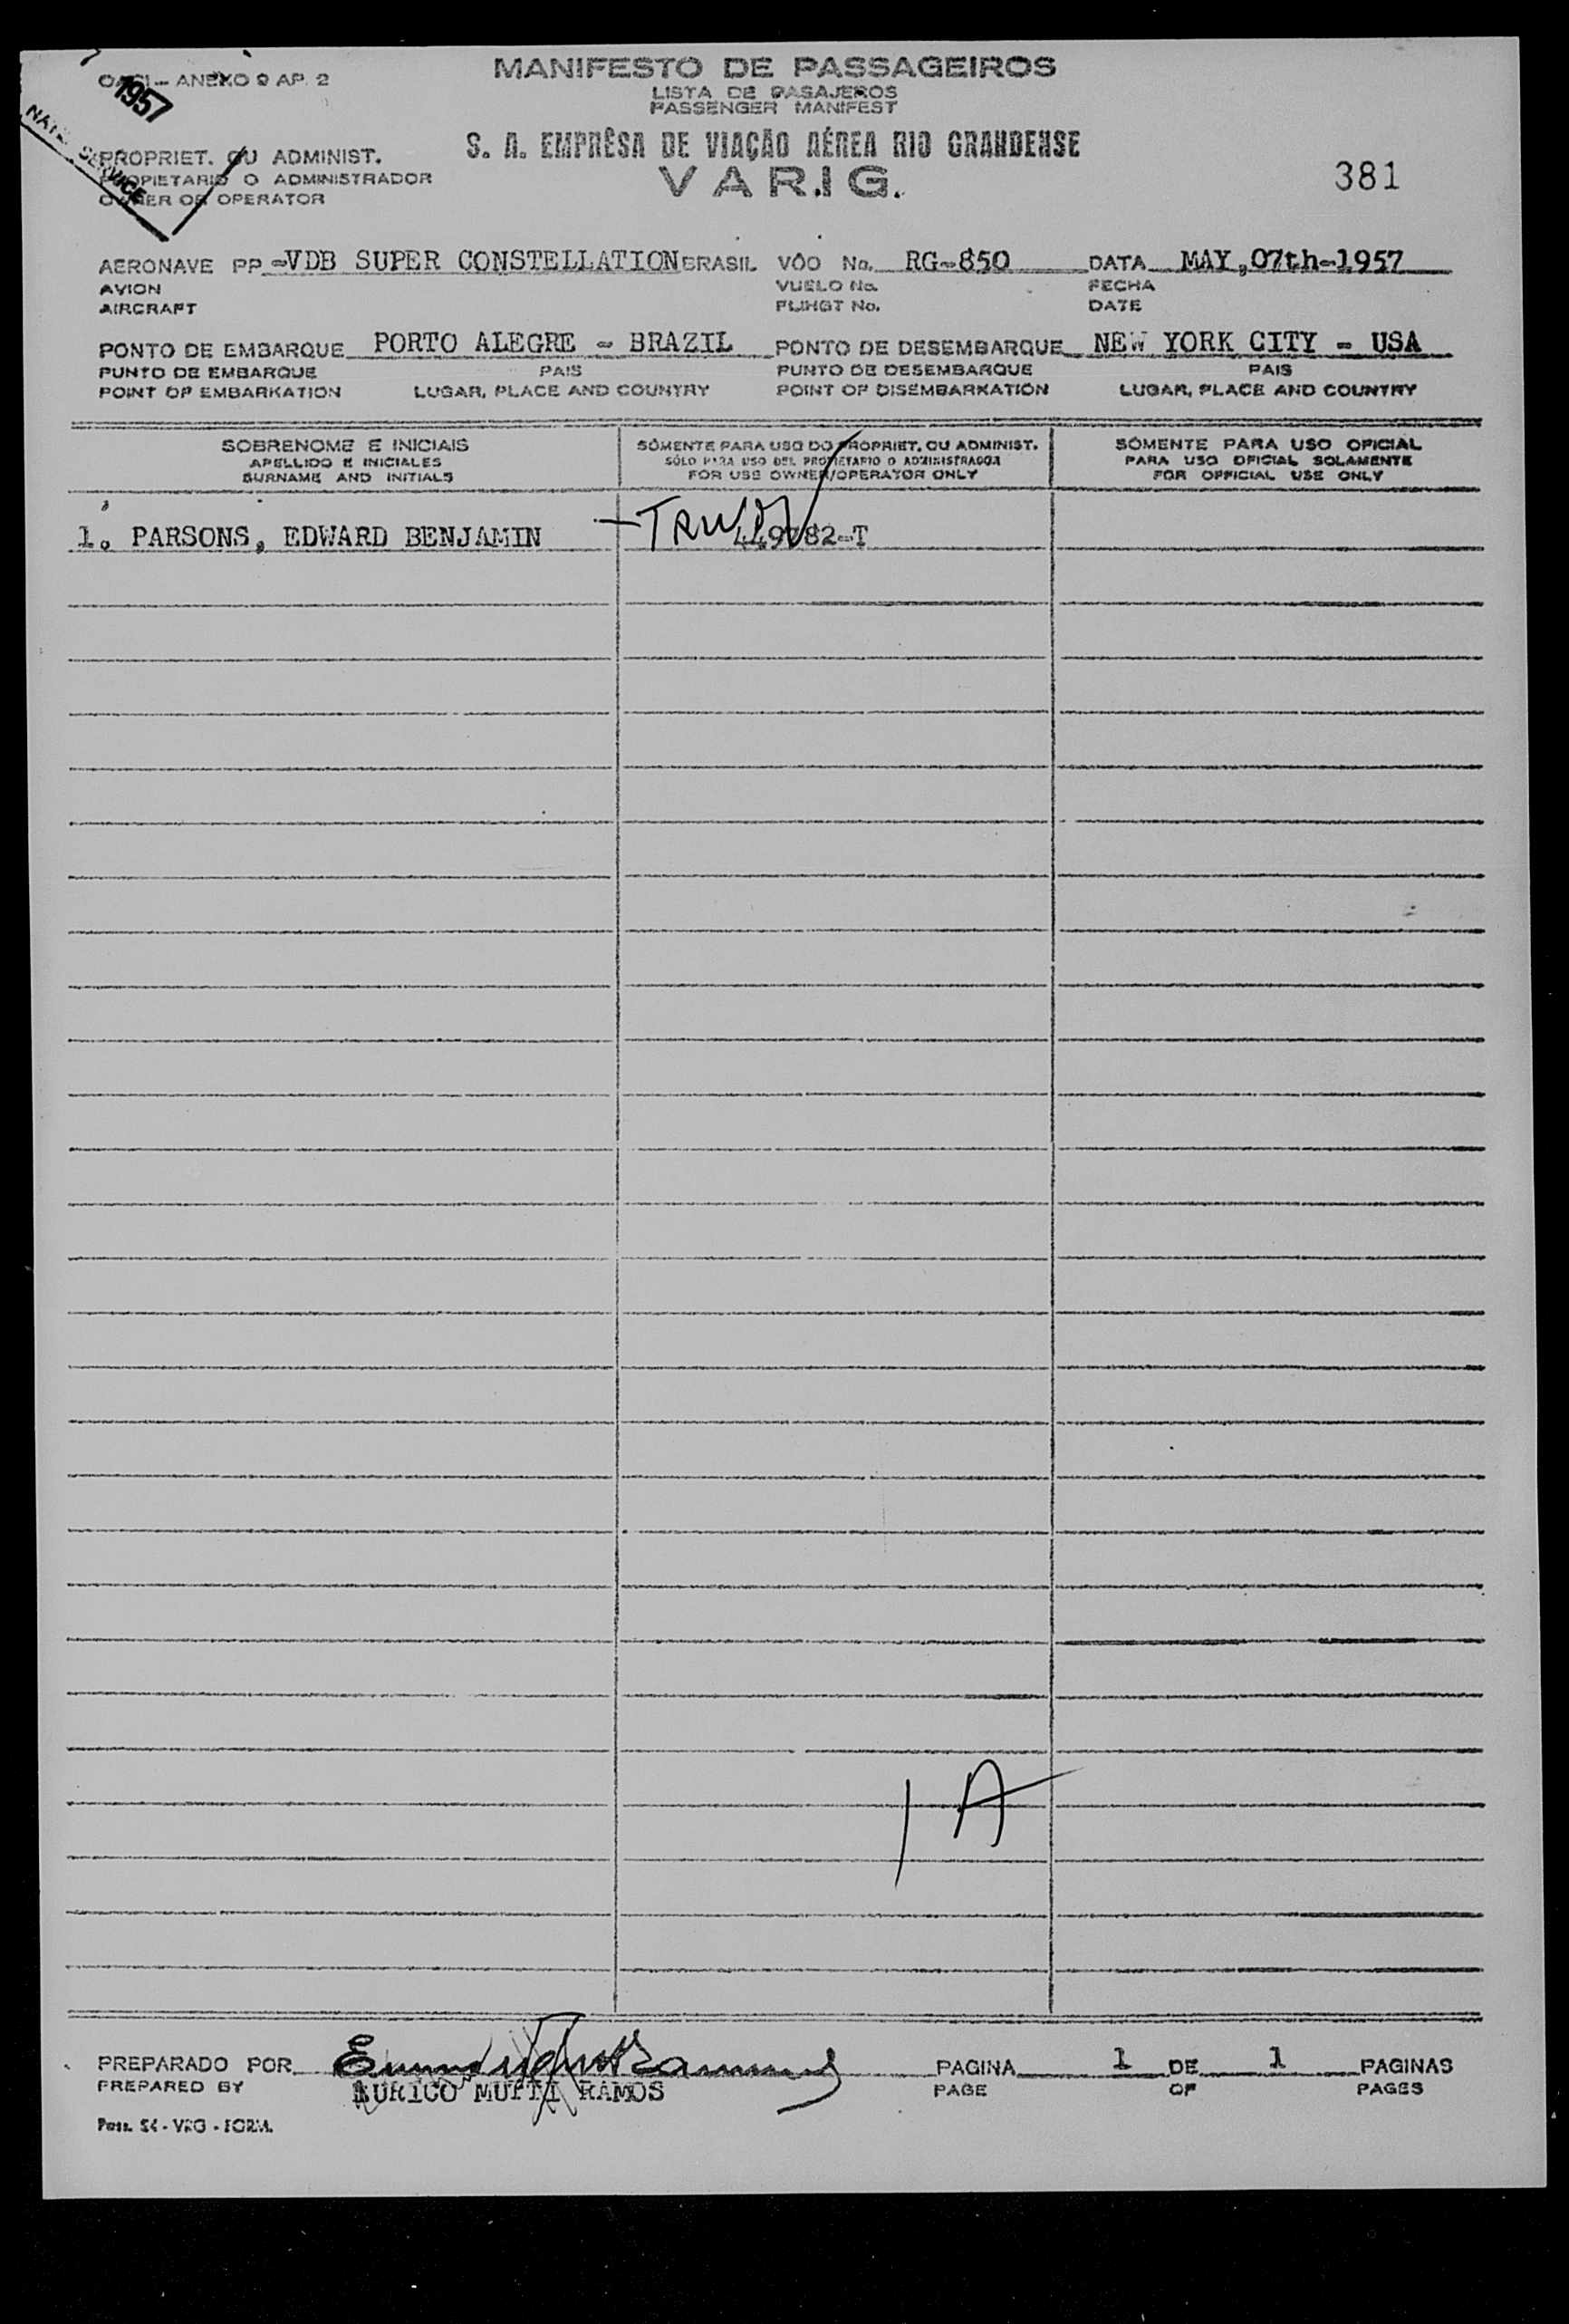 MANIFESTO DE PASSAGEIROS
LISTA DE PASAJEROS
PASSENGER MANIFEST
ANEXO 9 AP. 2
1957
NAT. SERVICE
S. A. EMPRÊSA DE VIAÇÃO AÉREA RIO GRANDENSE
VARIG.
381
PROPRIET. OU ADMINIST.
PROPIETARIO O ADMINISTRADOR
OWNER OR OPERATOR
AERONAVE PP-VDB SUPER CONSTELLATION BRASIL VÔO No. RG-850 DATA MAY,07th-1957
AVION VUELO No. FECHA
AIRCRAFT FLIHGT No. DATE
PONTO DE EMBARQUE PORTO ALEGRE - BRAZIL PONTO DE DESEMBARQUE NEW YORK CITY - USA
PUNTO DE EMBARQUE PAIS PUNTO DE DESEMBARQUE PAIS
POINT OF EMBARKATION LUGAR, PLACE AND COUNTRY POINT OF DISEMBARKATION LUGAR, PLACE AND COUNTRY
SOBRENOME E INICIAIS SÓMENTE PARA USO DO PROPRIET. OU ADMINIST. SÓMENTE PARA USO OFICIAL
APELLIDO E INICIALES SÓLO PARA USO DEL PROPIETARIO O ADMINISTRADOR PARA USO OFICIAL SOLAMENTE
SURNAME AND INITIALS FOR USE OWNER/OPERATOR ONLY FOR OFFICIAL USE ONLY
1. PARSONS, EDWARD BENJAMIN 449782-T
1 A
PREPARADO POR PAGINA 1 DE 1 PAGINAS
PREPARED BY AURICO MUTTI RAMOS PAGE OF PAGES